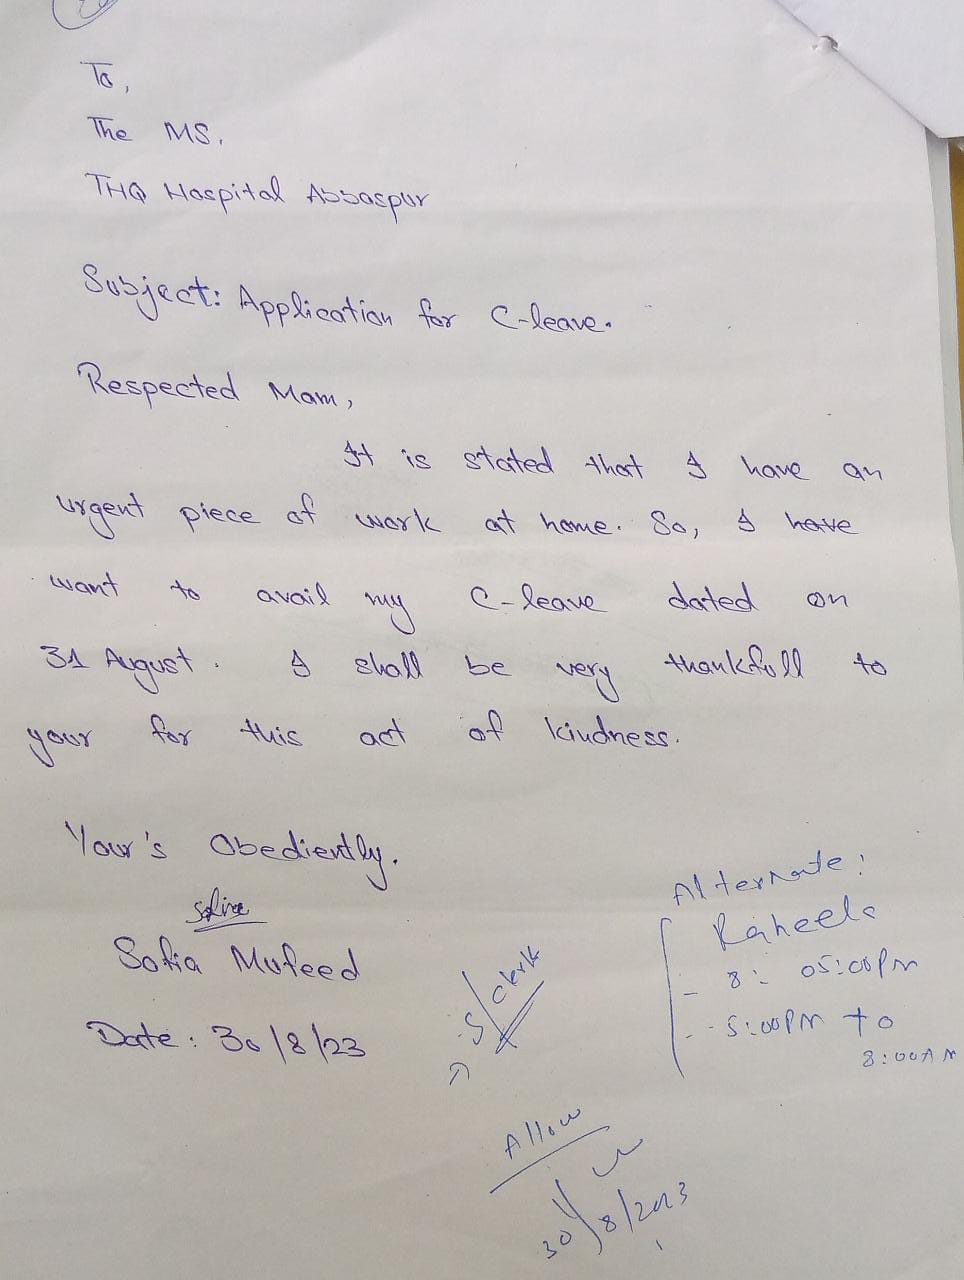 To,
The MS.
THQ Hospital Abbaspur
Subject: Application for C-leave.
Respected Mam,
It is stated that I have an
urgent piece of work at home. So, I have
want to avail my C-leave dated on
31 August. I shall be very thankfull to
your for this act of kindness.
Your's Obediently.
Sofia Mufeed
Date: 30/8/23
Alternate:
Raheela
8: 05:00PM
- 5:00PM to
8:00AM
S/clerk
Allow
30/8/2023